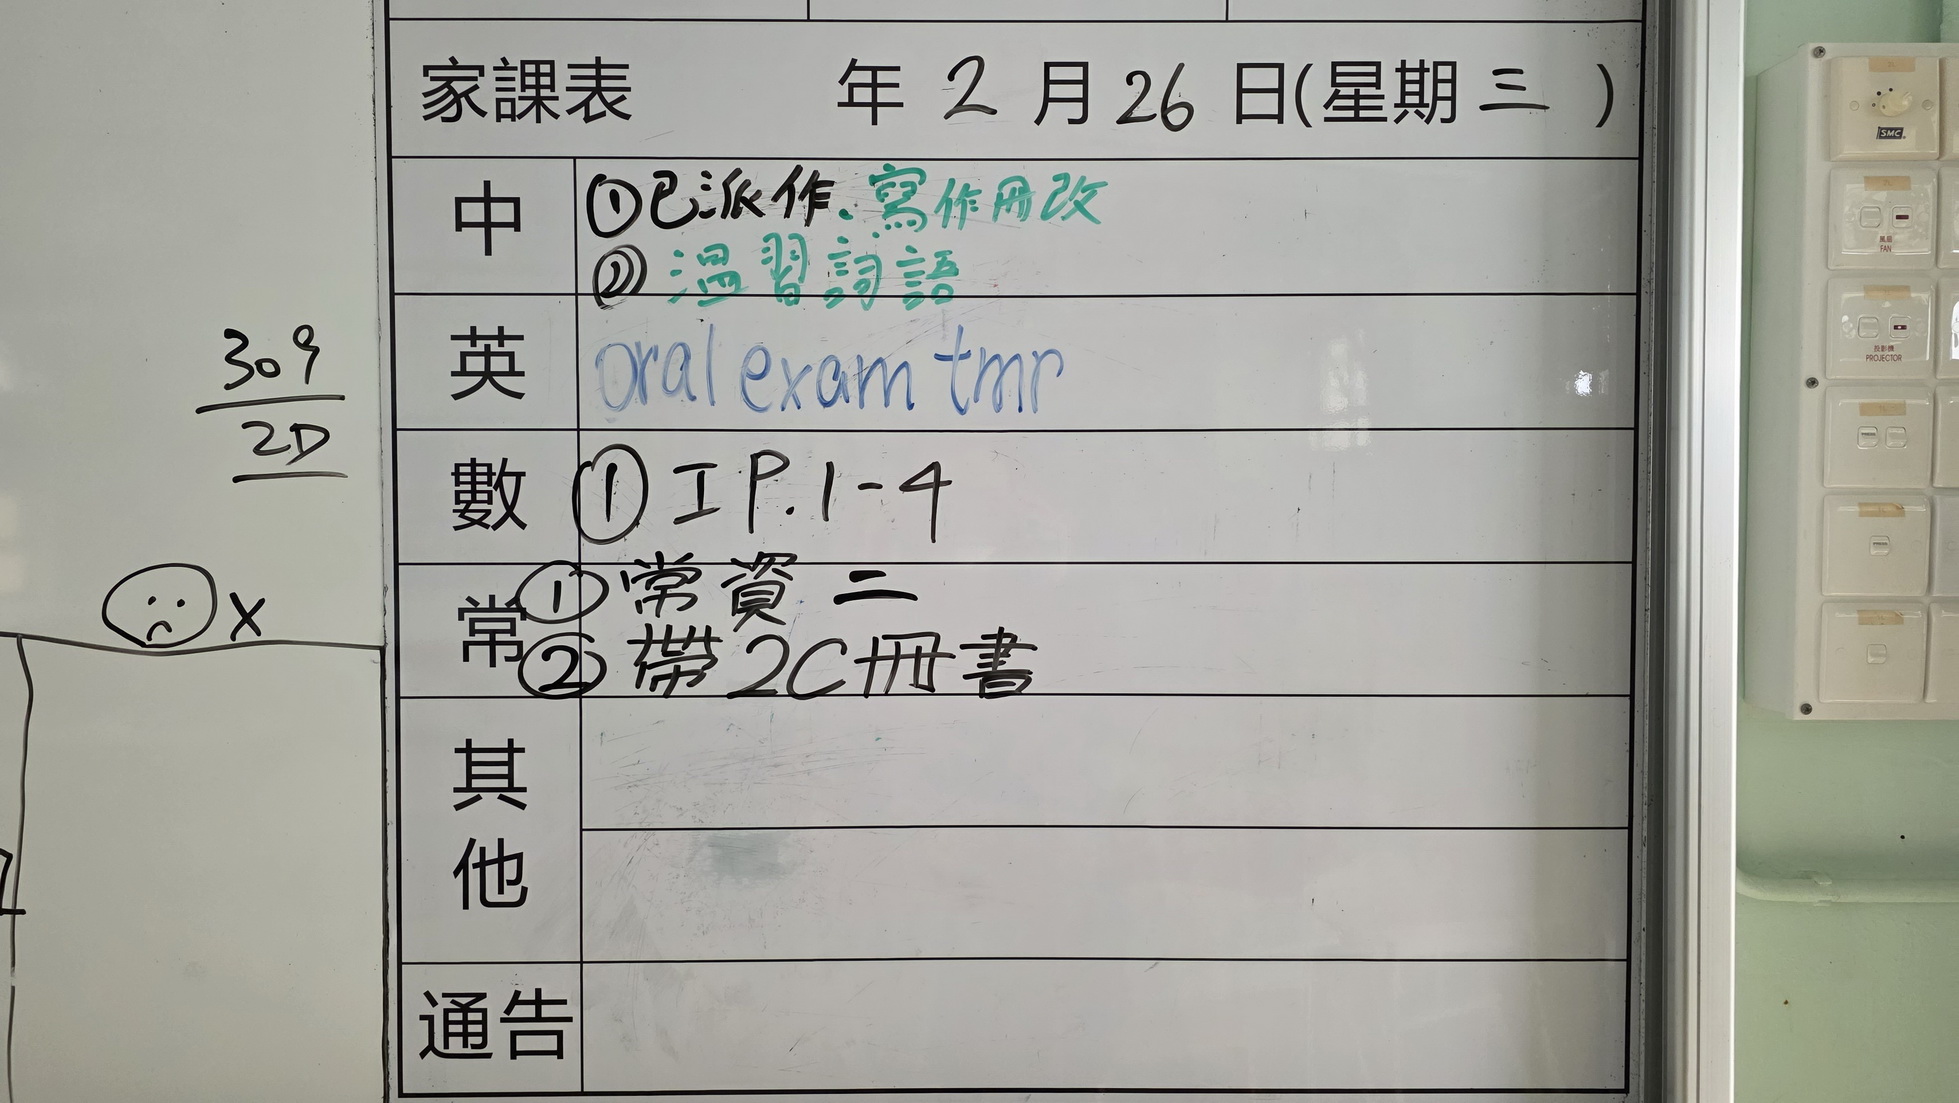 家課表 年 2 月 26 日(星期 三 )
中
①已派作.寫作冊改
② 溫習詞語
英
oral exam tmr
數
① I P.1-4
常
① 常資二
② 帶2C冊書
其他
通告
309
2D
X
SMC
風扇
FAN
投影機
PROJECTOR